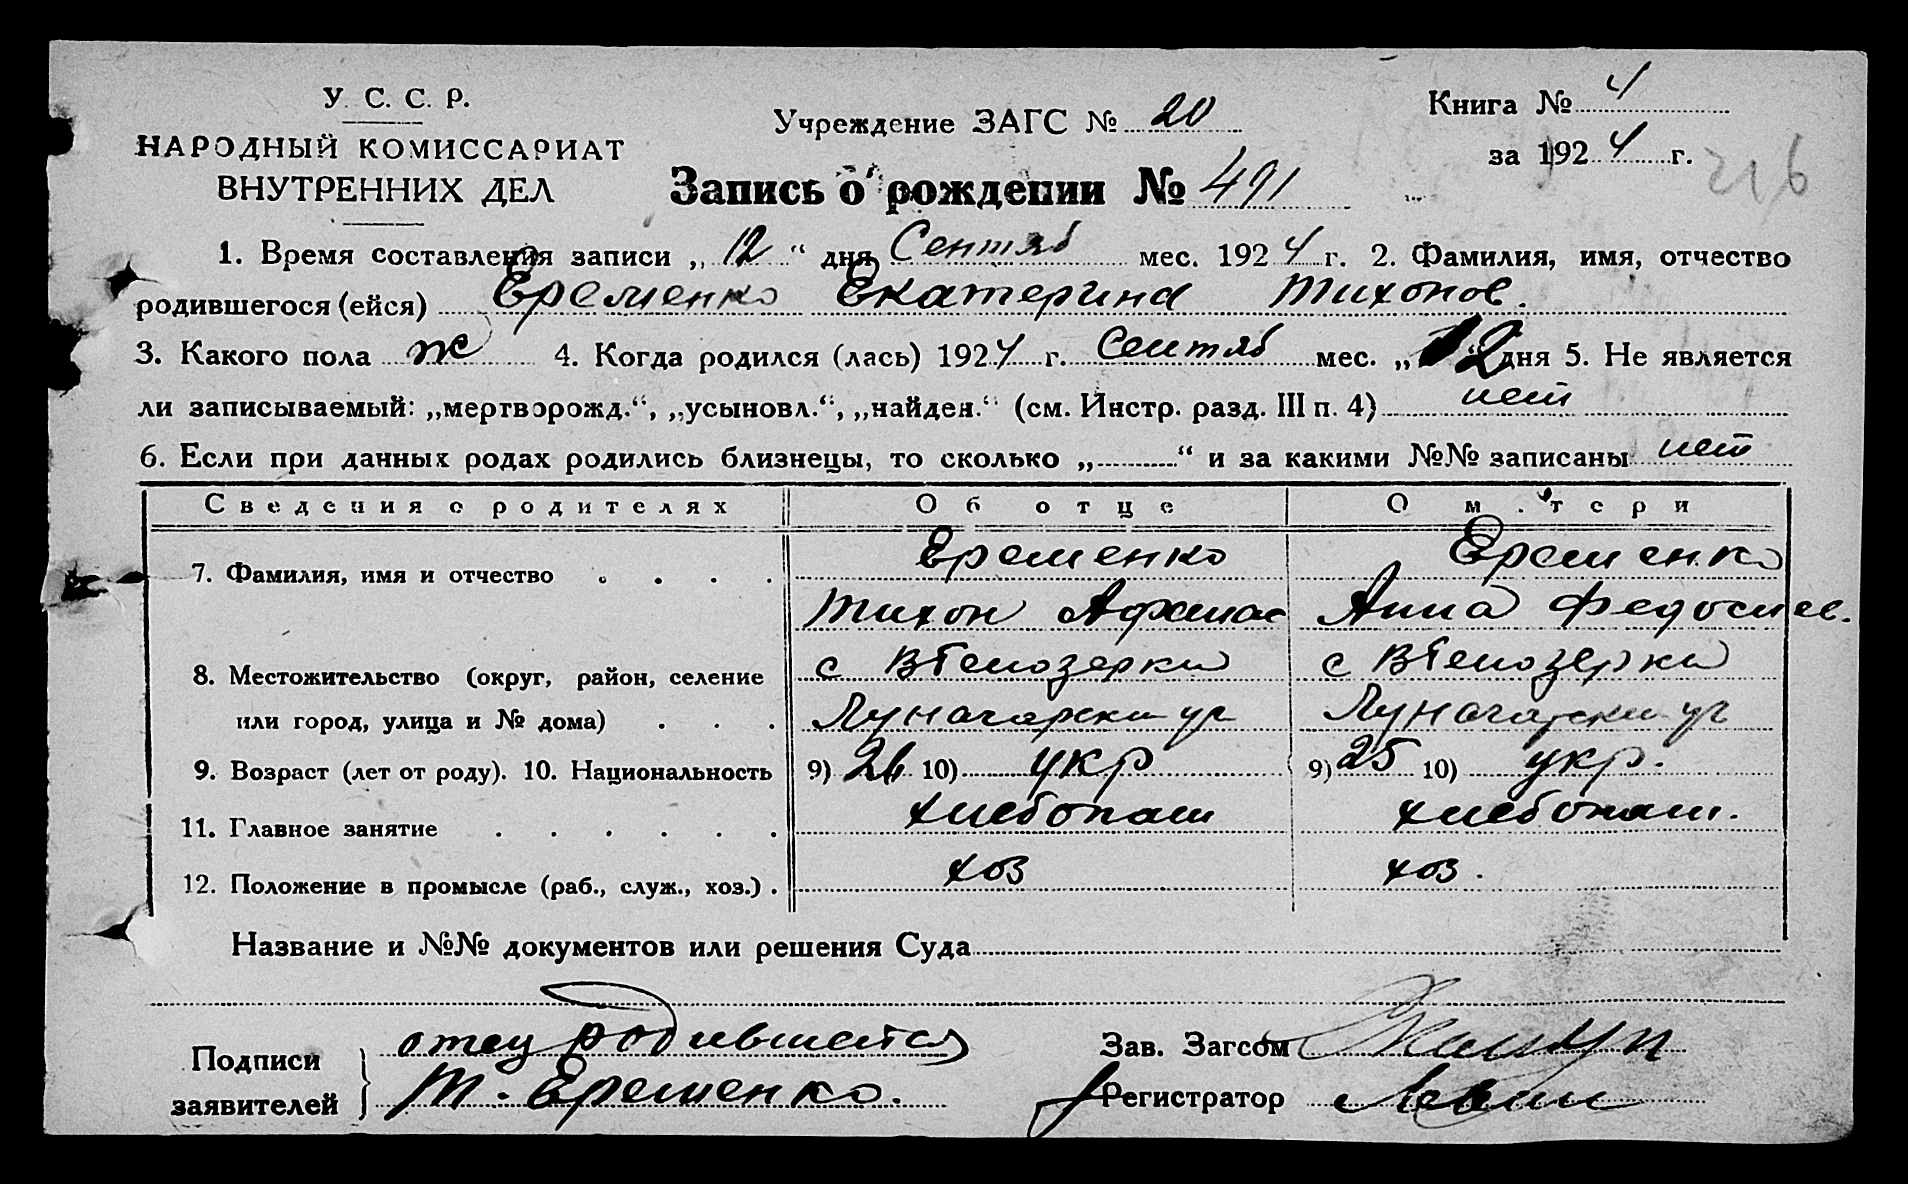 У. С. С. Р.
НАРОДНЫЙ КОМИССАРИАТ
ВНУТРЕННИХ ДЕЛ
Учреждение ЗАГС № 20
Книга № 4
за 1924 г.
216
Запись о рождении № 491
1. Время составления записи „12“ дня Сентяб мес. 1924 г. 2. Фамилия, имя, отчество
родившегося (ейся) Еременко Екатерина Тихонов.
3. Какого пола ж 4. Когда родился (лась) 1924 г. Сентяб мес. „12“ дня 5. Не является
ли записываемый: „мертворожд.“, „усыновл.“, „найден.“ (см. Инстр. разд. III п. 4) нет
6. Если при данных родах родились близнецы, то сколько „ “ и за какими №№ записаны нет
Сведения о родителях Об отце О м.тери
7. Фамилия, имя и отчество Еременко Еременко
Тихон Афанас Анна Федосиев.
8. Местожительство (округ, район, селение с ВБелозерки с ВБелозерки
или город, улица и № дома) Луначарски ул Луначарски ул
9. Возраст (лет от роду). 10. Национальность 9) 26 10) укр 9) 25 10) укр.
11. Главное занятие хлебопаш хлебопаш.
12. Положение в промысле (раб., служ., хоз.) хоз хоз.
Название и №№ документов или решения Суда
Подписи заявителей отец родившегося
Т. Еременко.
Зав. Загсом
Регистратор